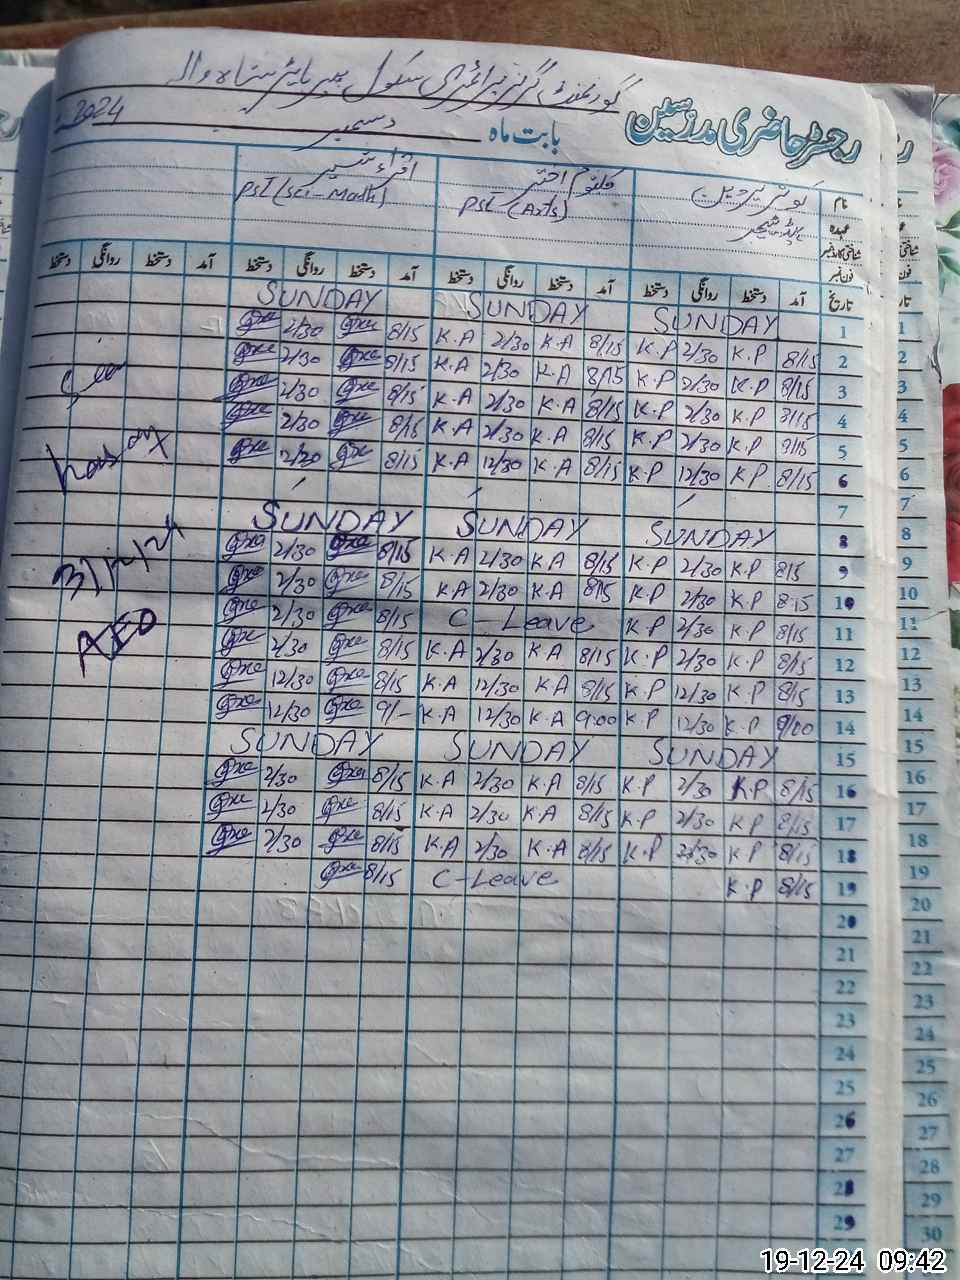 گورنمنٹ گرلز پرائمری سکول پیر
رجسٹر حاضری مدرسین
بابت ماہ دسمبر 2024
نام کوثر پروین کلثوم اختر اقراء
عہدہ ہیڈ ٹیچر PST (Arts) PST (Sci-Math)
شناختی کارڈ نمبر
فون نمبر
تاریخ آمد دستخط روانگی دستخط آمد دستخط روانگی دستخط آمد دستخط روانگی دستخط آمد دستخط روانگی دستخط
SUNDAY SUNDAY SUNDAY 1
2/30 8/15 K.A 2/30 K.A 8/15 K.P 2/30 K.P 8/15 2
2/30 8/15 K.A 2/30 K.A 8/15 K.P 2/30 K.P 8/15 3
2/30 8/15 K.A 2/30 K.A 8/15 K.P 2/30 K.P 8/15 4
2/30 8/15 K.A 2/30 K.A 8/15 K.P 2/30 K.P 8/15 5
12/30 8/15 K.A 12/30 K.A 8/15 K.P 12/30 K.P 8/15 6
7
SUNDAY SUNDAY SUNDAY 8
2/30 8/15 K.A 2/30 K.A 8/15 K.P 2/30 K.P 8/15 9
2/30 8/15 K.A 2/30 K.A 8/15 K.P 2/30 K.P 8:15 10
2/30 8/15 C-Leave K.P 2/30 K.P 8/15 11
2/30 8/15 K.A 2/30 K.A 8/15 K.P 2/30 K.P 8/15 12
12/30 8/15 K.A 12/30 K.A 8/15 K.P 12/30 K.P 8/15 13
12/30 9/- K.A 12/30 K.A 9:00 K.P 12/30 K.P 9/00 14
SUNDAY SUNDAY SUNDAY 15
2/30 8/15 K.A 2/30 K.A 8/15 K.P 2/30 K.P 8/15 16
2/30 8/15 K.A 2/30 K.A 8/15 K.P 2/30 K.P 8/15 17
2/30 8/15 K.A 2/30 K.A 8/15 K.P 2/30 K.P 8/15 18
8/15 C-Leave K.P 8/15 19
20
21
22
23
24
25
26
27
28
29
AEO
1
2
3
4
5
6
7
8
9
10
11
12
13
14
15
16
17
18
19
20
21
22
23
24
25
26
27
28
29
30
19-12-24 09:42